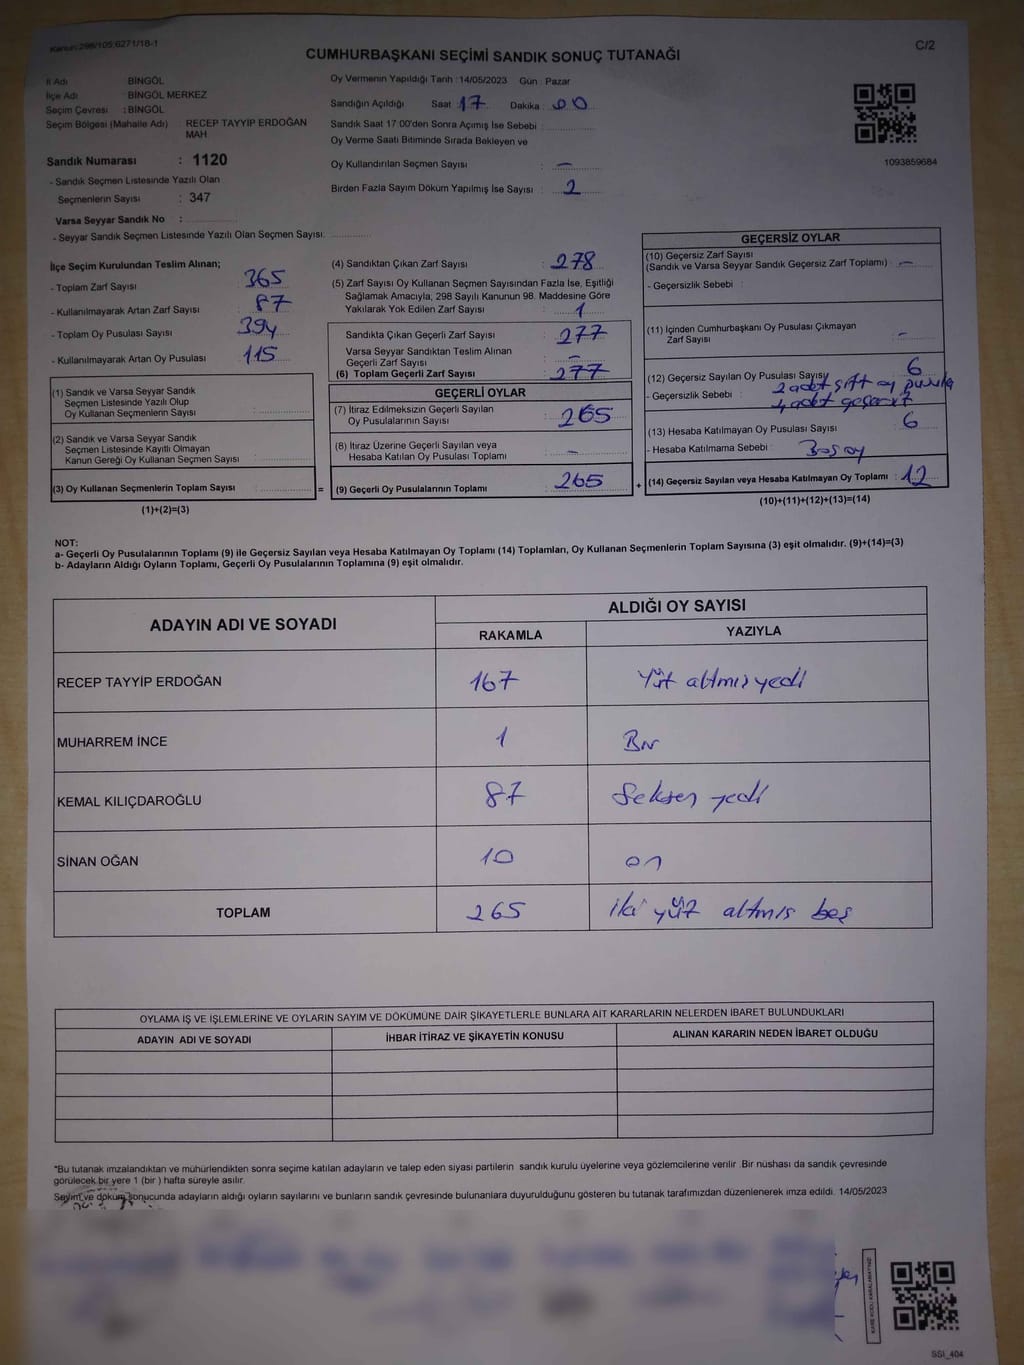 Kanun:298/105;6271/18-1
C/2
CUMHURBAŞKANI SEÇİMİ SANDIK SONUÇ TUTANAĞI
İl Adı : BİNGÖL
İlçe Adı : BİNGÖL MERKEZ
Seçim Çevresi : BİNGÖL
Seçim Bölgesi (Mahalle Adı) RECEP TAYYİP ERDOĞAN MAH
Sandık Numarası : 1120
- Sandık Seçmen Listesinde Yazılı Olan
Seçmenlerin Sayısı : 347
Varsa Seyyar Sandık No :
- Seyyar Sandık Seçmen Listesinde Yazılı Olan Seçmen Sayısı:
Oy Vermenin Yapıldığı Tarih :14/05/2023 Gün : Pazar
Sandığın Açıldığı Saat : 17 Dakika : 00
Sandık Saat 17:00'den Sonra Açımış İse Sebebi :
Oy Verme Saati Bitiminde Sırada Bekleyen ve
Oy Kullandırılan Seçmen Sayısı : —
Birden Fazla Sayım Döküm Yapılmış İse Sayısı : 2
1093859684
İlçe Seçim Kurulundan Teslim Alınan;
- Toplam Zarf Sayısı : 365
- Kullanılmayarak Artan Zarf Sayısı : 87
- Toplam Oy Pusulası Sayısı : 394
- Kullanılmayarak Artan Oy Pusulası : 115
(1) Sandık ve Varsa Seyyar Sandık
Seçmen Listesinde Yazılı Olup
Oy Kullanan Seçmenlerin Sayısı :
(2) Sandık ve Varsa Seyyar Sandık
Seçmen Listesinde Kayıtlı Olmayan
Kanun Gereği Oy Kullanan Seçmen Sayısı :
(3) Oy Kullanan Seçmenlerin Toplam Sayısı : =
(1)+(2)=(3)
(4) Sandıktan Çıkan Zarf Sayısı : 278
(5) Zarf Sayısı Oy Kullanan Seçmen Sayısından Fazla İse, Eşitliği
Sağlamak Amacıyla, 298 Sayılı Kanunun 98. Maddesine Göre
Yakılarak Yok Edilen Zarf Sayısı : 1
Sandıkta Çıkan Geçerli Zarf Sayısı : 277
Varsa Seyyar Sandıktan Teslim Alınan
Geçerli Zarf Sayısı : —
(6) Toplam Geçerli Zarf Sayısı : 277
GEÇERLİ OYLAR
(7) İtiraz Edilmeksizin Geçerli Sayılan
Oy Pusulalarının Sayısı : 265
(8) İtiraz Üzerine Geçerli Sayılan veya
Hesaba Katılan Oy Pusulası Toplamı : —
(9) Geçerli Oy Pusulalarının Toplamı : 265 +
GEÇERSİZ OYLAR
(10) Geçersiz Zarf Sayısı
(Sandık ve Varsa Seyyar Sandık Geçersiz Zarf Toplamı) : —
- Geçersizlik Sebebi :
(11) İçinden Cumhurbaşkanı Oy Pusulası Çıkmayan
Zarf Sayısı : —
(12) Geçersiz Sayılan Oy Pusulası Sayısı : 6
- Geçersizlik Sebebi : 2 adet çift oy pusula
4 adet geçersiz
(13) Hesaba Katılmayan Oy Pusulası Sayısı : 6
- Hesaba Katılmama Sebebi : Boş oy
(14) Geçersiz Sayılan veya Hesaba Katılmayan Oy Toplamı : 12
(10)+(11)+(12)+(13)=(14)
NOT:
a- Geçerli Oy Pusulalarının Toplamı (9) ile Geçersiz Sayılan veya Hesaba Katılmayan Oy Toplamı (14) Toplamları, Oy Kullanan Seçmenlerin Toplam Sayısına (3) eşit olmalıdır. (9)+(14)=(3)
b- Adayların Aldığı Oyların Toplamı, Geçerli Oy Pusulalarının Toplamına (9) eşit olmalıdır.
ADAYIN ADI VE SOYADI
ALDIĞI OY SAYISI
RAKAMLA YAZIYLA
RECEP TAYYİP ERDOĞAN 167 Yüz altmış yedi
MUHARREM İNCE 1 Bir
KEMAL KILIÇDAROĞLU 87 Seksen yedi
SİNAN OĞAN 10 on
TOPLAM 265 iki yüz altmış beş
OYLAMA İŞ VE İŞLEMLERİNE VE OYLARIN SAYIM VE DÖKÜMÜNE DAİR ŞİKAYETLERLE BUNLARA AİT KARARLARIN NELERDEN İBARET BULUNDUKLARI
ADAYIN ADI VE SOYADI İHBAR İTİRAZ VE ŞİKAYETİN KONUSU ALINAN KARARIN NEDEN İBARET OLDUĞU
*Bu tutanak imzalandıktan ve mühürlendikten sonra seçime katılan adayların ve talep eden siyasi partilerin sandık kurulu üyelerine veya gözlemcilerine verilir .Bir nüshası da sandık çevresinde
görülecek bir yere 1 (bir ) hafta süreyle asılır.
Sayım ve döküm sonucunda adayların aldığı oyların sayılarını ve bunların sandık çevresinde bulunanlara duyurulduğunu gösteren bu tutanak tarafımızdan düzenlenerek imza edildi. 14/05/2023
KARE KODU KARALAMAYINIZ!
SSI_404